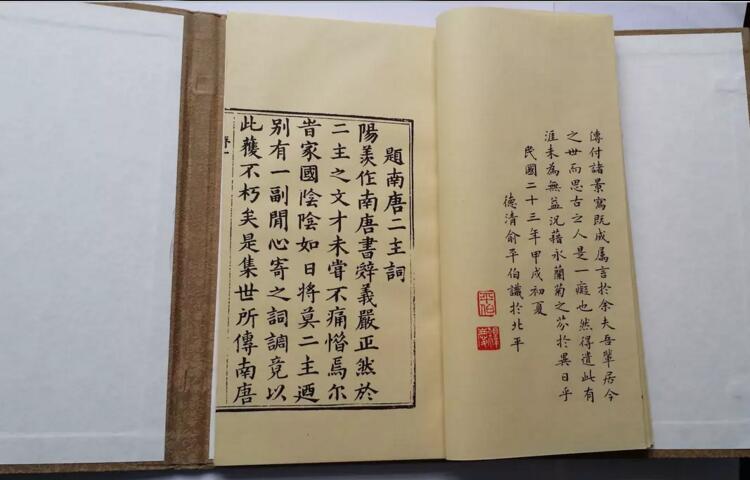 傳付諸景寫既成属言於余夫吾輩居今
之世而思古之人是一癡也然得遣此有
涯未為無益況藉永蘭菊之芬於異日乎
民國二十三年甲戌初夏
德清俞平伯識於北平
平伯
題南唐二主詞
陽羨作南唐書辭義嚴正然於
二主之文才未嘗不痛憯焉尔
旹家國陰陰如日將莫二主迺
別有一副閒心寄之詞調竟以
此獲不朽矣是集世所傳南唐